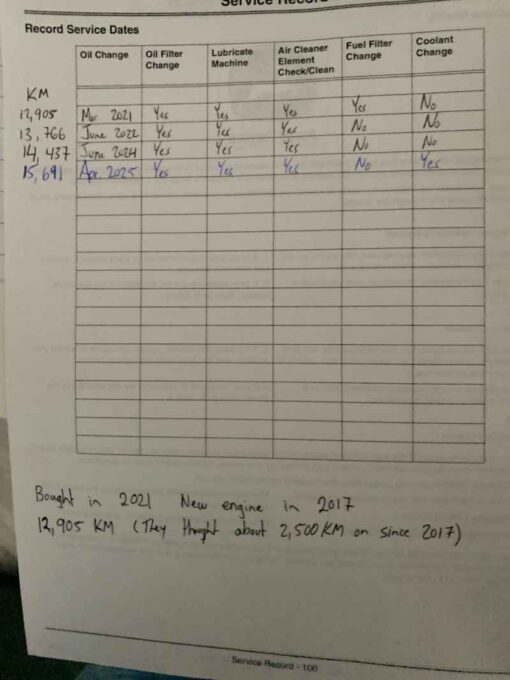 Service Record
Record Service Dates
Oil Change Oil Filter Change Lubricate Machine Air Cleaner Element Check/Clean Fuel Filter Change Coolant Change
KM
12,905 Mar 2021 Yes Yes Yes Yes No
13,766 June 2022 Yes Yes Yes No No
14,437 June 2024 Yes Yes Yes No No
15,691 Apr 2025 Yes Yes Yes No Yes
Bought in 2021 New engine in 2017
12,905 KM (They thought about 2,500 KM on since 2017)
Service Record - 100